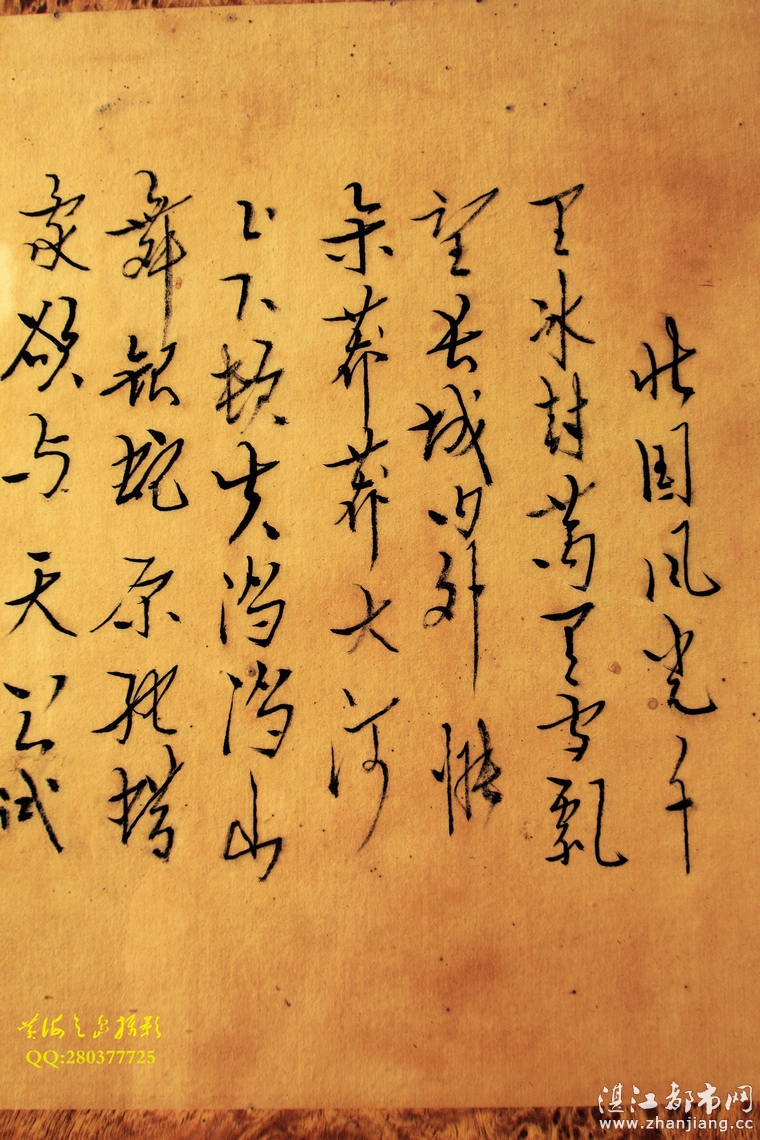 北国风光千
里冰封萬里雪飄
望长城内外惟
余莽莽大河
上下顿失滔滔山
舞银蛇原驰蜡
象欲与天公试
QQ:280377725
湛江都市网
www.zhanjiang.cc